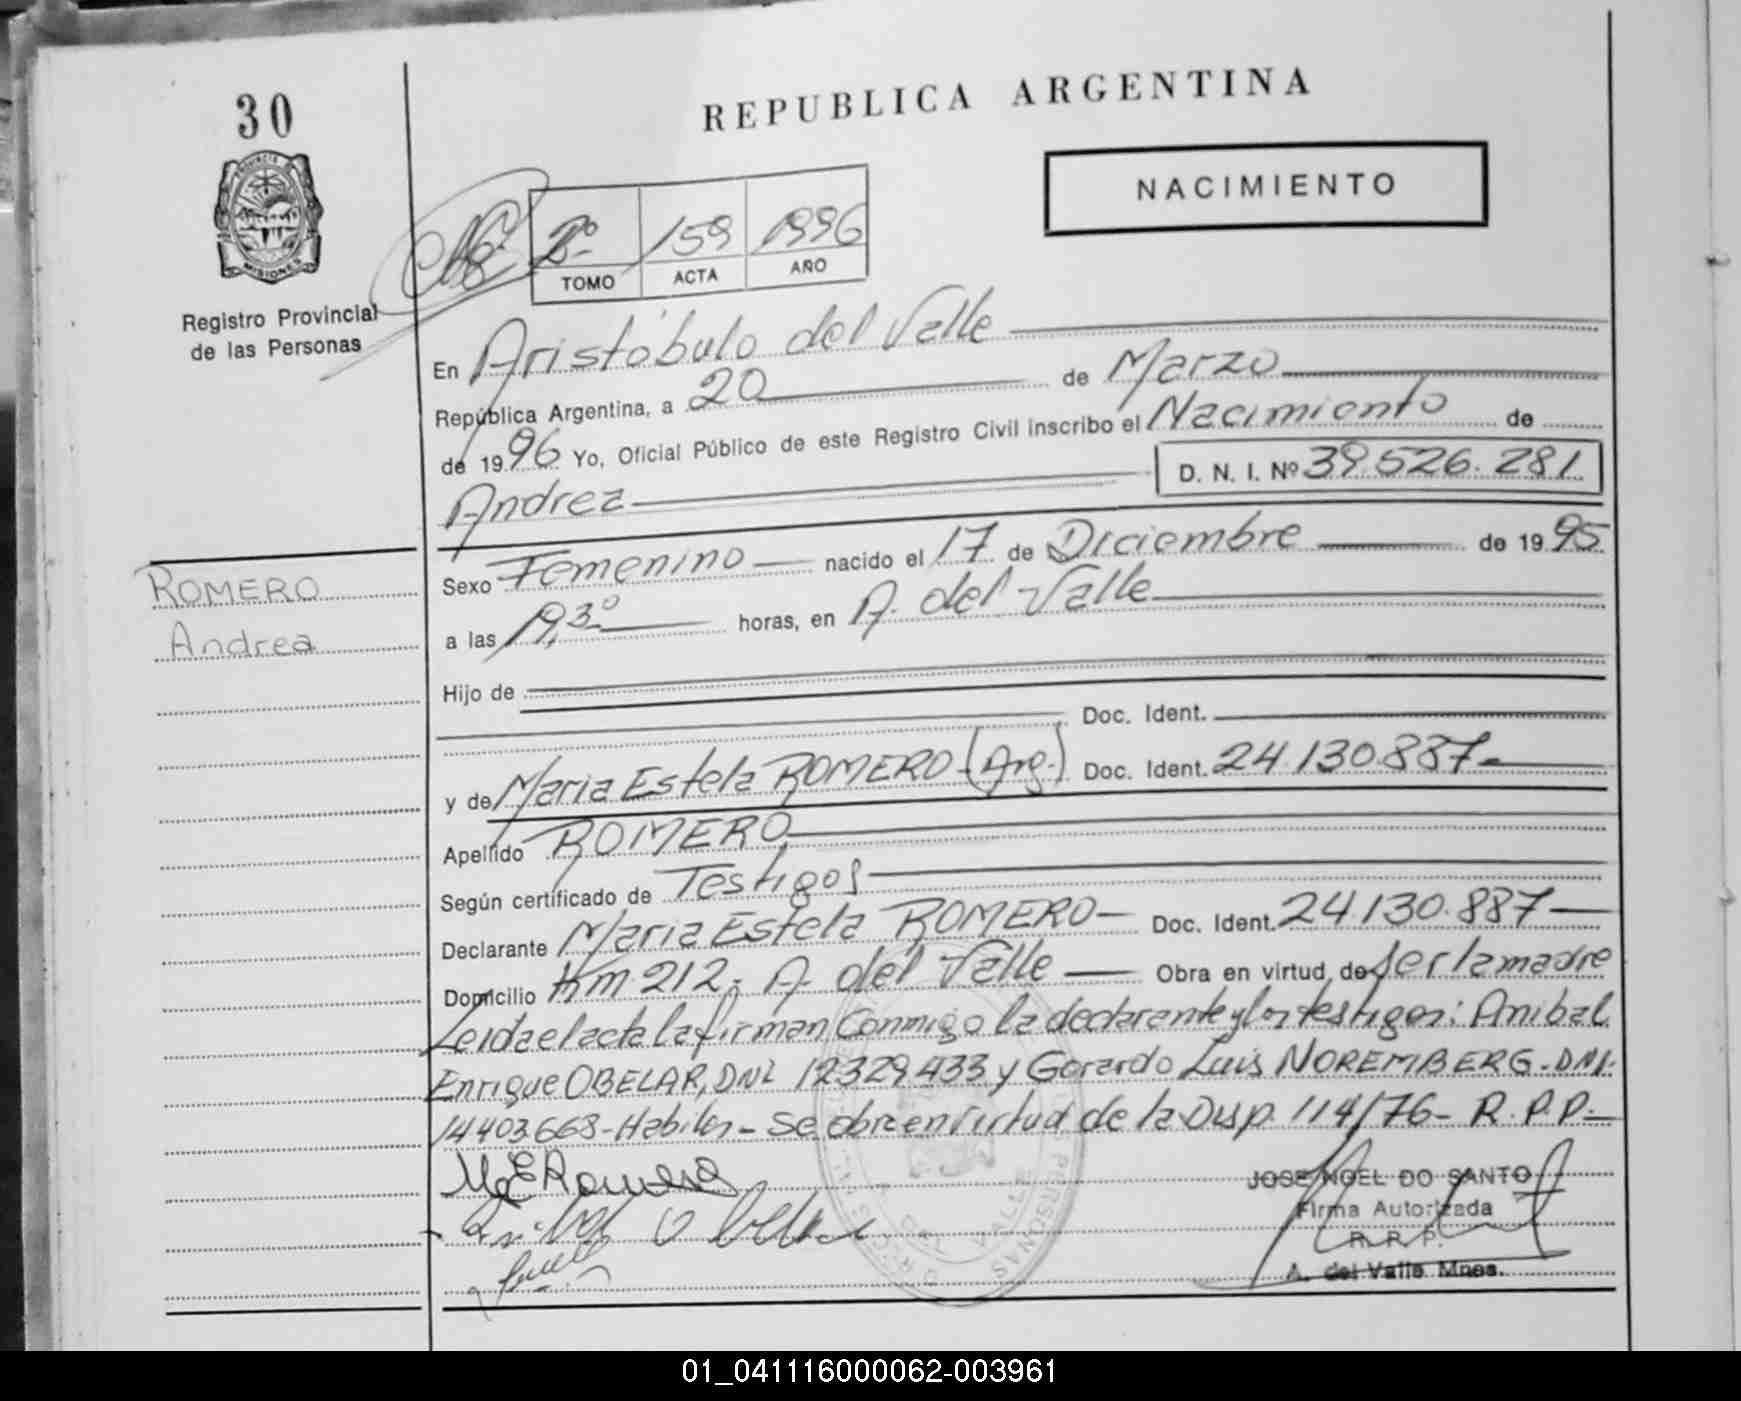 30
REPUBLICA ARGENTINA
NACIMIENTO
PROVINCIA DE
MISIONES
Registro Provincial
de las Personas
2º 159 1996
TOMO ACTA AÑO
En Aristóbulo del Valle
República Argentina, a 20 de Marzo
de 1996 Yo, Oficial Público de este Registro Civil inscribo el Nacimiento de
Andrea D. N. I. Nº 39.526.281
ROMERO
Andrea
Sexo Femenino nacido el 17 de Diciembre de 1995
a las 19,3º horas, en A. del Valle
Hijo de
Doc. Ident.
y de Maria Estela ROMERO (Arg.) Doc. Ident. 24.130.887-
Apellido ROMERO
Según certificado de Testigos
Declarante Maria Estela ROMERO- Doc. Ident. 24.130.887
Domicilio Km 212- A. del Valle Obra en virtud de ser la madre
Leida el acta la firman Conmigo la declarante y los testigos: Anibal
Enrique OBELAR, DNI 12329.433 y Gerardo Luis NOREMBERG. DNI.
14403.668-Habiles- se obra en virtud de la Disp. 114/76- R.P.P.-
Mª E Romero
JOSE NOEL DO SANTO
Firma Autorizada
R. R. P.
A. del Valle Mnes.
01_041116000062-003961